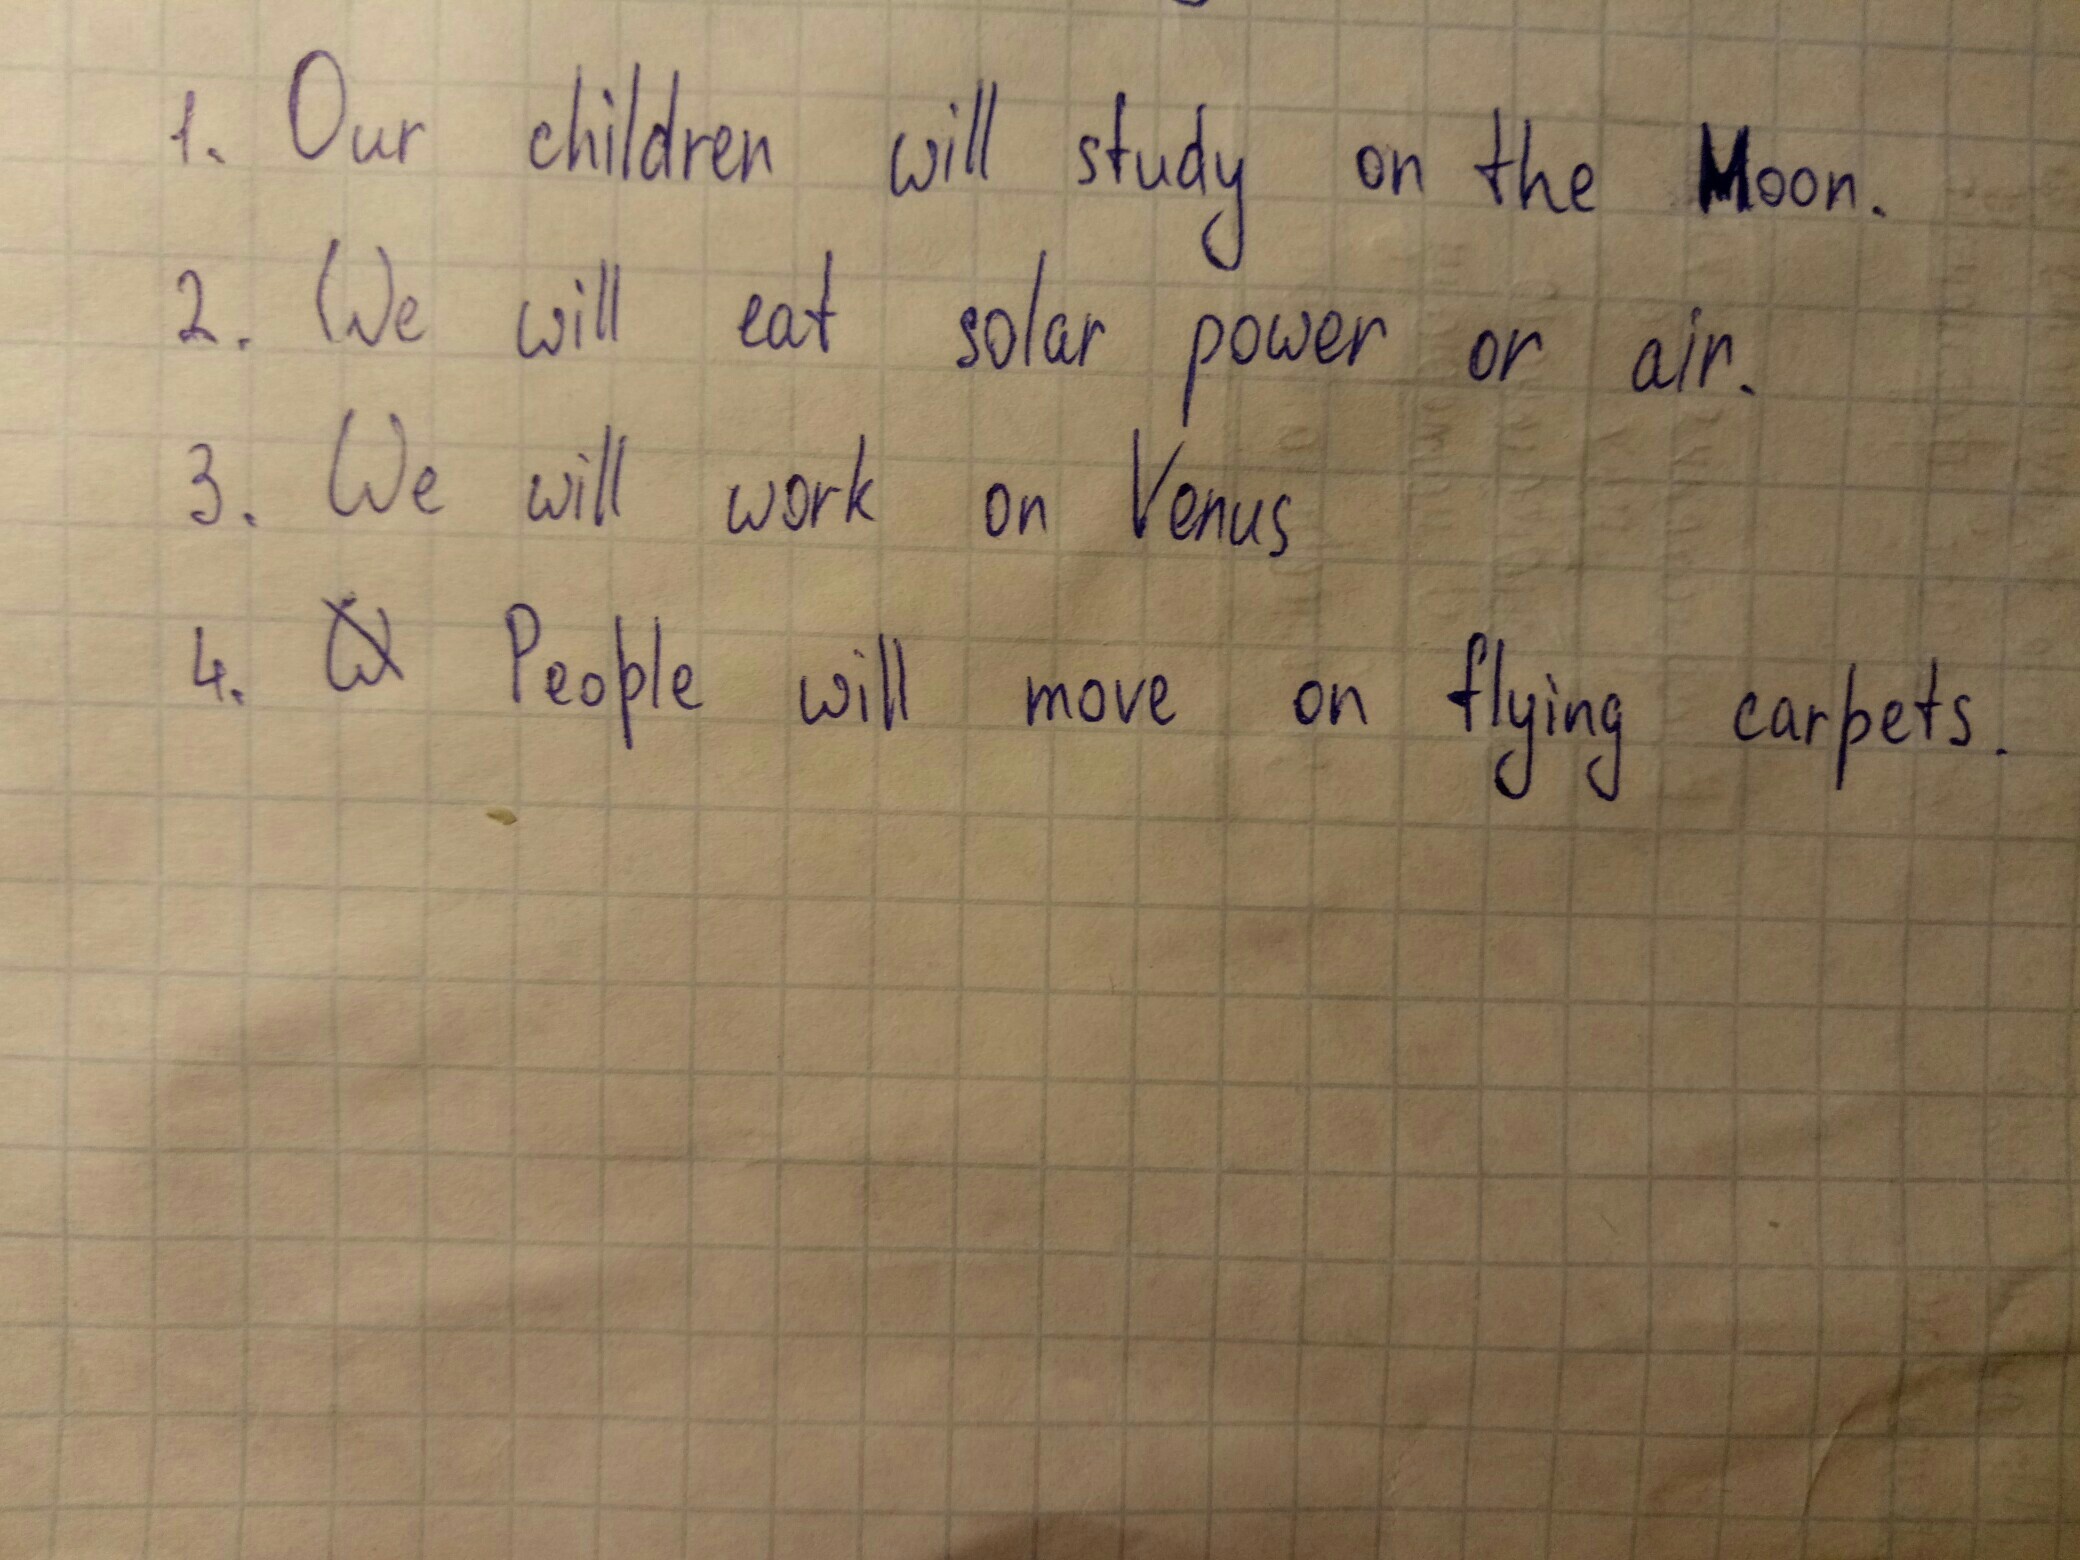 1. Our children will study on the Moon.
2. We will eat solar power or air.
3. We will work on Venus
4. People will move on flying carpets.